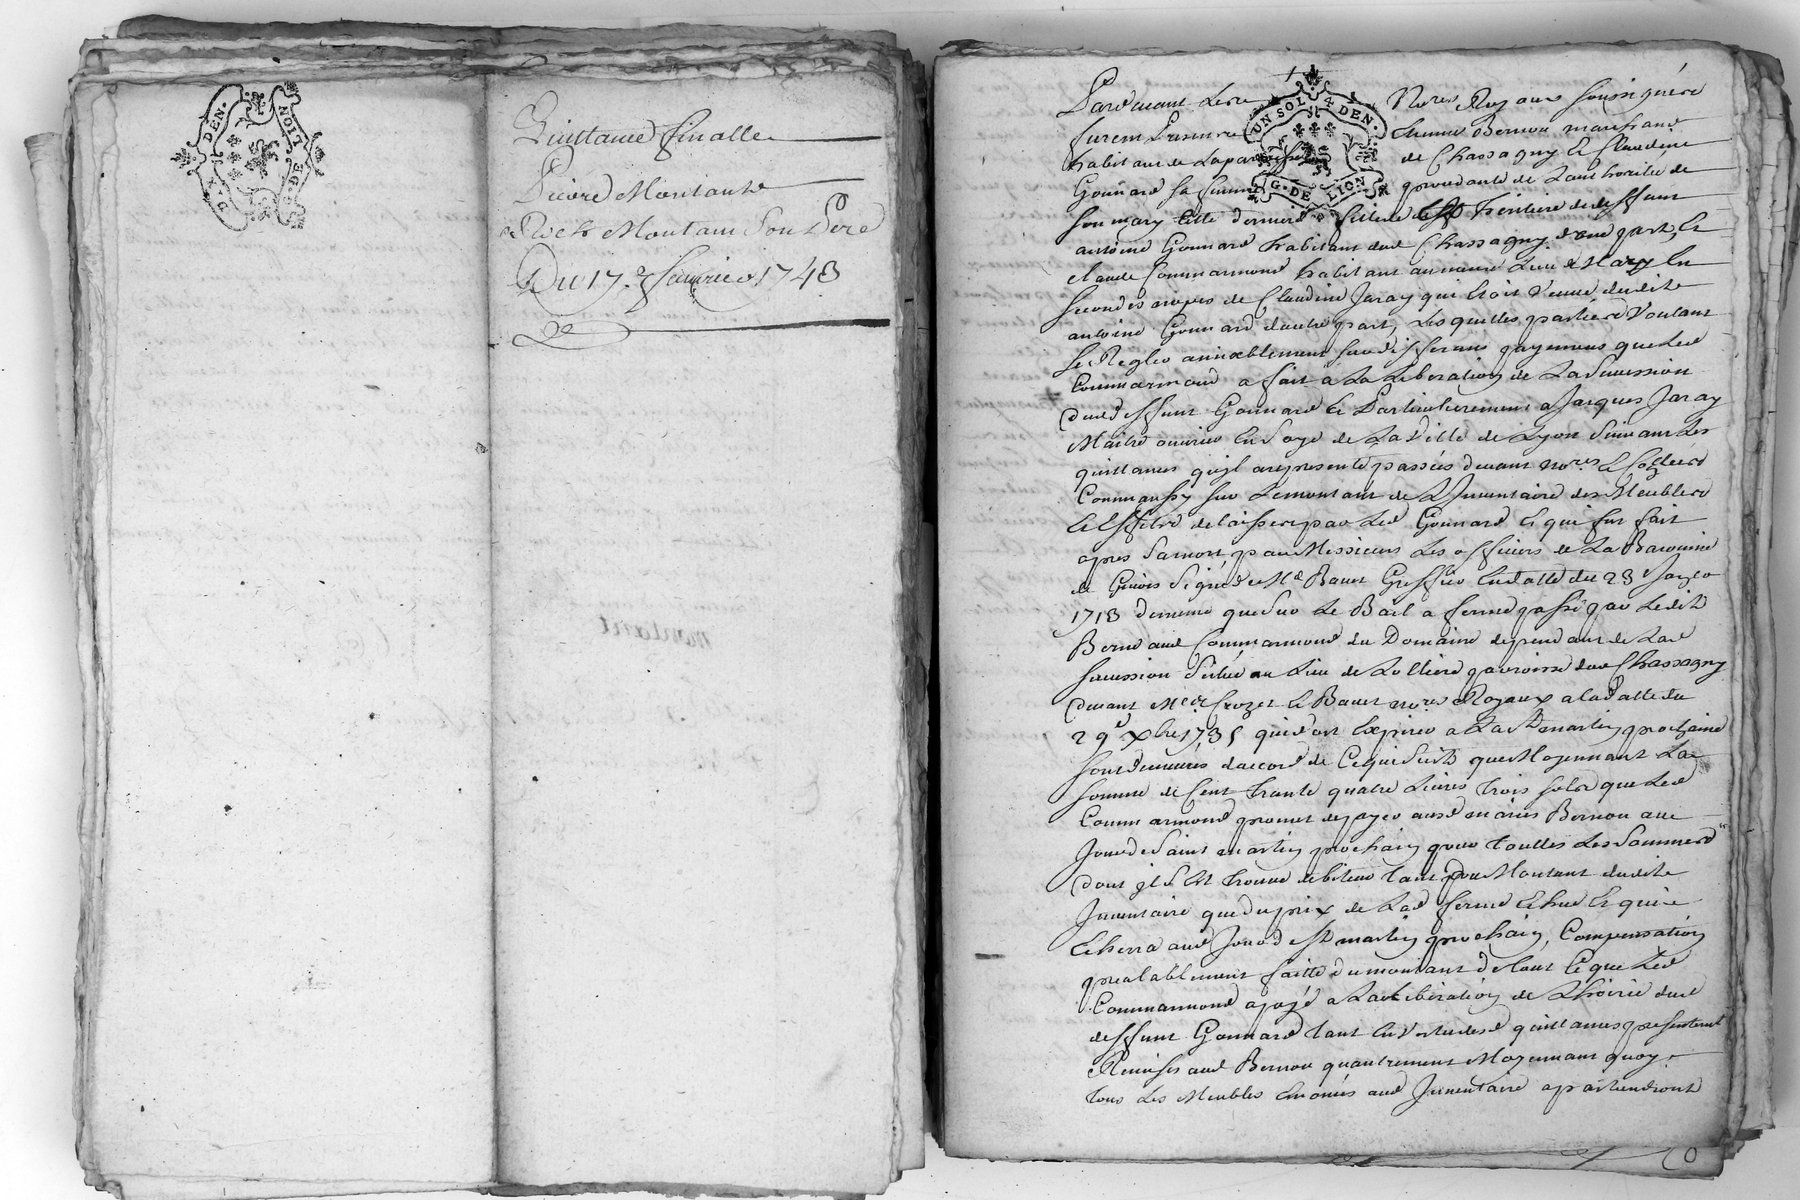 DEN.
G. DE LION
Quittance finalle
Pierre Montant
a Roch Montant Son Pere
Du 17e feuvrier 1743
UN SOL 4 DEN.
G. DE LION
Pardevant Les Nores Royaux soussignéz
furent presens Bernou marchand
habitant de La parroisse de Chassagny et Claudine
Gonnard sa femme procedante de Lauthorité de
son mary cette derniere heritiere de deffunt
antoine Gonnard habitant dud Chassagny d'une part, Et
claude Commarmond habitant au mesme Lieu Mary En
secondes nopces de Claudine Jaray qui Etoit Veuve dudit
antoine Gonnard dautre part, Lesquelles parties Voulant
se Regler amiablement sur differans payemens que Led
Commarmond a fait à La Liberation de La Sucession
dud deffunt Gonnard Et Particulierement a Jacques Jaray
Maitre ouvrier En Soye de La Ville de Lyon Suivant Les
quittances qu'jl a representé passées devant nores
Comm aussy sur Le montant de L'Jnventaire des Meubles
Et Effets delaissez par Led Gonnard Et qui fut fait
apres Sa mort par Messieurs Les officiers de La Baronnie
de Givors Signé Me Bauet Greffier En datte du 23
1713 de mesme que Sur Le Bail a ferme passé par Ledit
Bernou aud Commarmond du Domaine dependant de Lad
sucession Situé au Lieu de parroisse dud Chassagny
devant Crozet Et Bauet nores Royaux a la datte du
29e xbre 1735 qui doit Expirer a La St martin prochaine
sont demeurés d'accord de Ce qui Suit que Moyennant La
somme de Cent trante quatre Livres trois sols que Led
Commarmond promet de payer aud mariés Bernou au
Jour de Saint martin prochain pour touttes Les Sommes
dont jl s'Est trouvé debiteur tant pour Montant dudit
Jnventaire que du prix de Lad ferme Echue Et qui
Echerra aud Jour de St martin prochain, Compensation
prealablement faitte du montant de tout Ce que Led
Commarmond a payé a La Liberation de L'hoirie dud
deffunt Gonnard tant En Vertu desd quittances presentement
Remises aud Bernou qu'autrement Moyennant quoy
tous Les Meubles Enoncés aud Jnventaire apartiendront